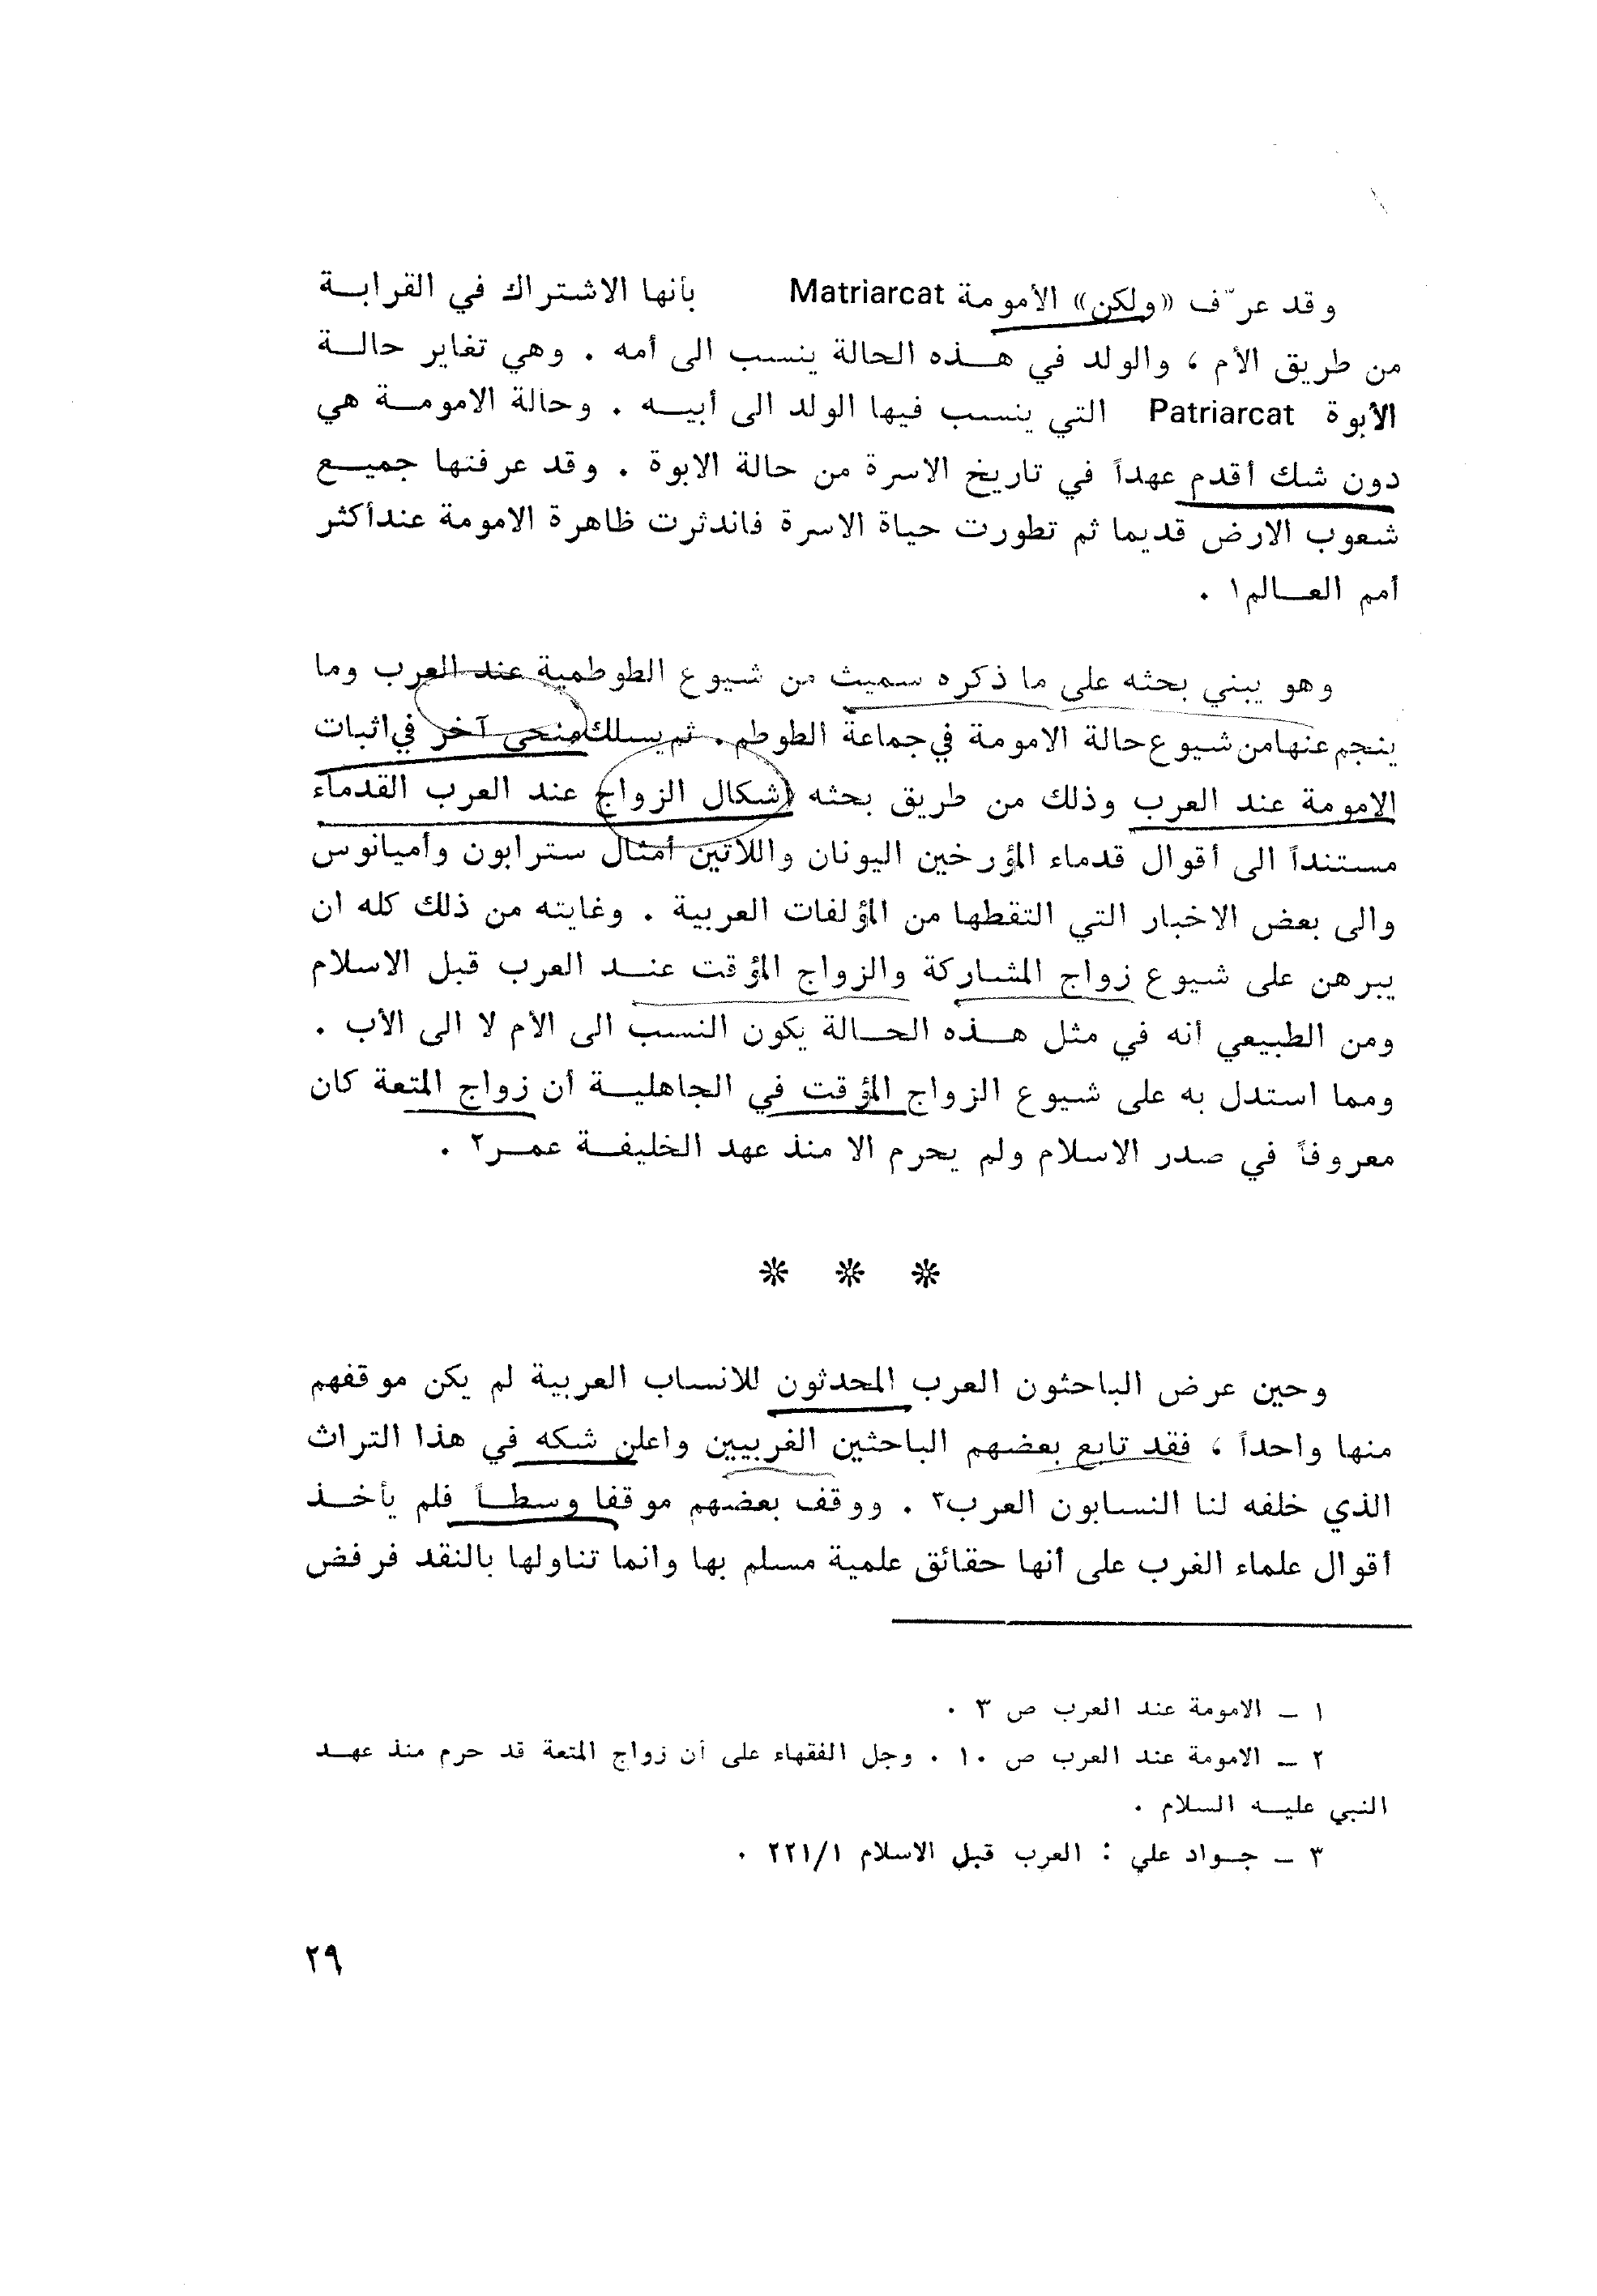 وقد عرّف «ولكن» الأمومة Matriarcat بأنها الاشتراك في القرابة
من طريق الأم ، والولد في هذه الحالة ينسب الى أمه . وهي تغاير حالة
الأبوة Patriarcat التي ينسب فيها الولد الى أبيه . وحالة الامومة هي
دون شك أقدم عهداً في تاريخ الاسرة من حالة الابوة . وقد عرفتها جميع
شعوب الارض قديما ثم تطورت حياة الاسرة فاندثرت ظاهرة الامومة عند أكثر
أمم العالم١ .
وهو يبني بحثه على ما ذكره سميث من شيوع الطوطمية عند العرب وما
ينجم عنها من شيوع حالة الامومة في جماعة الطوطم . ثم يسلك منحى آخر في اثبات
الامومة عند العرب وذلك من طريق بحثه أشكال الزواج عند العرب القدماء
مستنداً الى أقوال قدماء المؤرخين اليونان واللاتين أمثال سترابون وأميانوس
والى بعض الاخبار التي التقطها من المؤلفات العربية . وغايته من ذلك كله ان
يبرهن على شيوع زواج المشاركة والزواج المؤقت عند العرب قبل الاسلام
ومن الطبيعي أنه في مثل هذه الحالة يكون النسب الى الأم لا الى الأب .
ومما استدل به على شيوع الزواج المؤقت في الجاهلية أن زواج المتعة كان
معروفاً في صدر الاسلام ولم يحرم الا منذ عهد الخليفة عمر٢ .
* * *
وحين عرض الباحثون العرب المحدثون للانساب العربية لم يكن موقفهم
منها واحداً ، فقد تابع بعضهم الباحثين الغربيين واعلن شكه في هذا التراث
الذي خلفه لنا النسابون العرب٣ . ووقف بعضهم موقفا وسطاً فلم يأخذ
أقوال علماء الغرب على أنها حقائق علمية مسلم بها وانما تناولها بالنقد فرفض
١ – الامومة عند العرب ص ٣ .
٢ – الامومة عند العرب ص ١٠ . وجل الفقهاء على أن زواج المتعة قد حرم منذ عهد
النبي عليه السلام .
٣ – جواد علي : العرب قبل الاسلام ٢٢١/١ .
٢٩